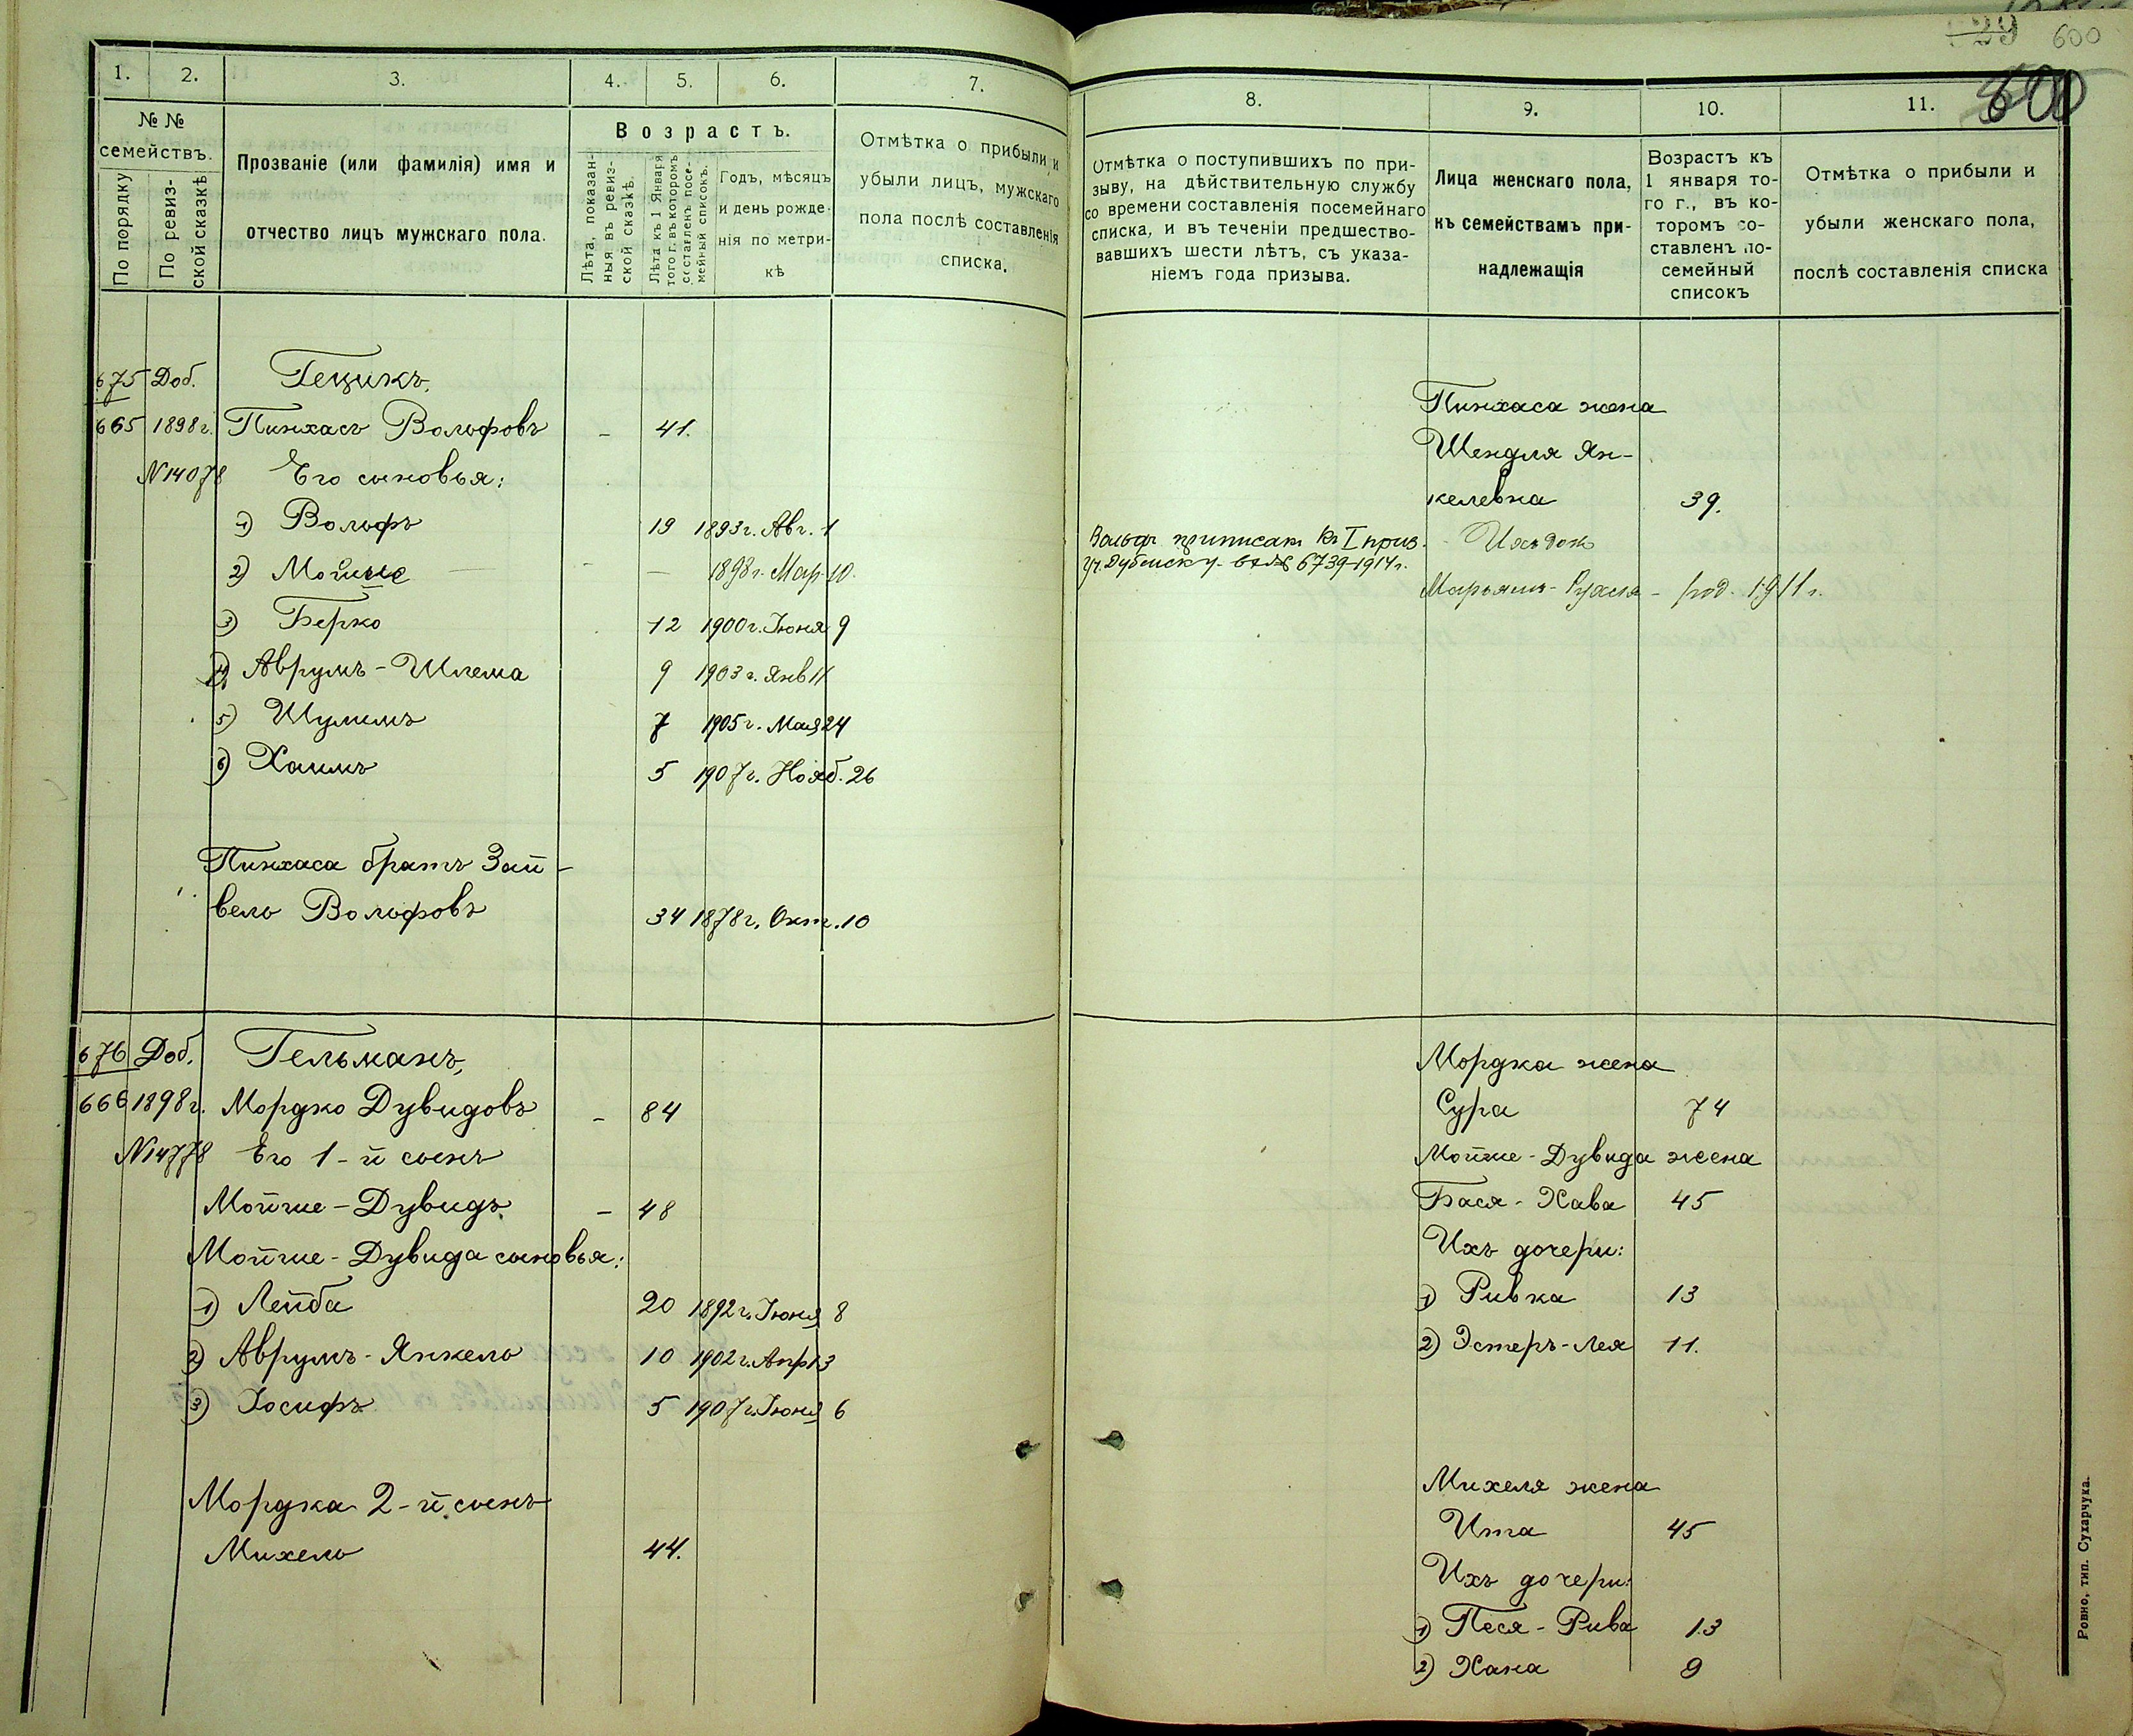 29 600
600
1. 2. 3. 4. 5. 6. 7.
№ №
семействъ.
По порядку
По ревиз-
ской сказкѣ
Прозваніе (или фамилія) имя и
отчество лицъ мужскаго пола.
Возрастъ.
Лѣта, показан-
ныя въ ревиз-
ской сказкѣ.
Лѣта къ 1 Января
того г. въ которомъ
составленъ посе-
мейный списокъ.
Годъ, мѣсяцъ
и день рожде-
нія по метри-
кѣ
Отмѣтка о прибыли и
убыли лицъ, мужскаго
пола послѣ составленія
списка.
675 Доб. Гецикъ,
665 1898 г. Пинхасъ Вольфовъ - 41.
N 14078 Его сыновья:
1) Вольфъ 19 1893 г. Авг. 1
2) Мойше — 1898 г. Мар. 10.
3) Берко 12 1900 г. Іюня 9
4) Аврумъ-Шлема 9 1903 г. Янв 11
5) Шулимъ 7 1905 г. Мая 24
6) Хаимъ 5 1907 г. Нояб. 26
Пинхаса братъ Зай-
вель Вольфовъ 34 1878 г. Окт. 10
676 Доб. Гельманъ,
666 1898 г. Мордко Дувидовъ - 84
N 14778 Его 1-й сынъ
Мойше-Дувидъ - 48
Мойше-Дувида сыновья:
1) Лейба 20 1892 г. Іюня 8
2) Аврумъ-Янкель 10 1902 г. Апр 13
3) Іосифъ 5 1907 г. Іюня 6
Мордка 2-й сынъ
Михель 44.
8. 9. 10. 11.
Отмѣтка о поступившихъ по при-
зыву, на дѣйствительную службу
со времени составленія посемейнаго
списка, и въ теченіи предшество-
вавшихъ шести лѣтъ, съ указа-
ніемъ года призыва.
Лица женскаго пола,
къ семействамъ при-
надлежащія
Возрастъ къ
1 января то-
го г., въ ко-
торомъ со-
ставленъ по-
семейный
списокъ
Отмѣтка о прибыли и
убыли женскаго пола,
послѣ составленія списка
Пинхаса жена
Шендля Ян-
келевна 39.
Вольфъ приписанъ къ I приз.
уч. Дубенску 6739-1914 г.
Ихъ доч
Марьям-Рухля - род. 1911 г.
Мордка жена
Сура 74
Мойше-Дувида жена
Бася-Хава 45
Ихъ дочери:
1) Ривка 13
2) Эстеръ-Лея 11.
Михеля жена
Ита 45
Ихъ дочери:
1) Песя-Рива 13
2) Хана 9
Ровно, тип. Сухарчука.